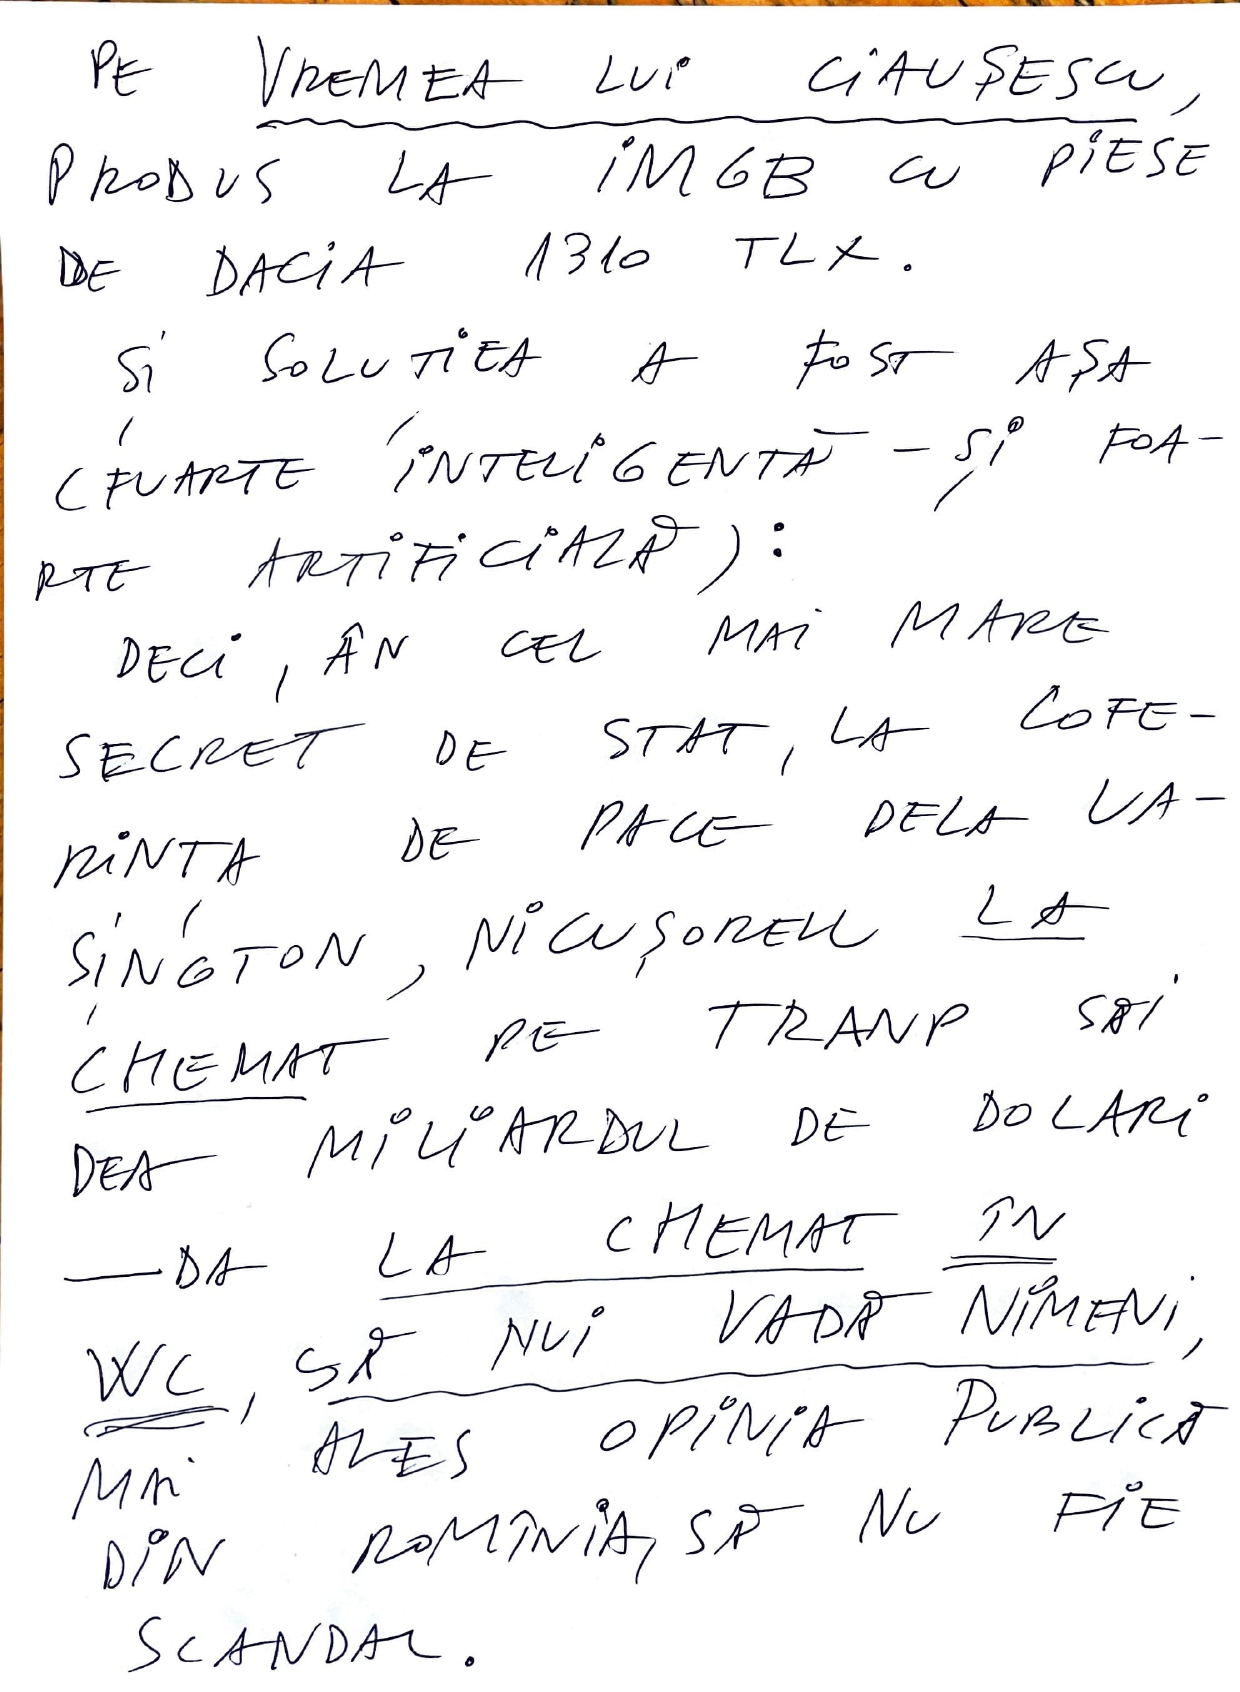 PE VREMEA LUI CIAUȘESCU,
PRODUS LA IMGB CU PIESE
DE DACIA 1310 TLX.
SI SOLUTIEA A FOST AȘA
(FUARTE INTELIGENTĂ - ȘI FOA-
RTE ARTIFICIALĂ):
DECI, ÂN CEL MAI MARE
SECRET DE STAT, LA COFE-
RINTA DE PACE DELA VA-
SINGTON, NICUȘORELL LA
CHEMAT PE TRANP SĂI
DEA MILIARDUL DE DOLARI
—DA LA CHEMAT ÎN
WC, SĂ NUI VADĂ NIMENI,
MAI ALES OPINIA PUBLICĂ
DIN ROMÎNIA, SĂ NU FIE
SCANDAL.